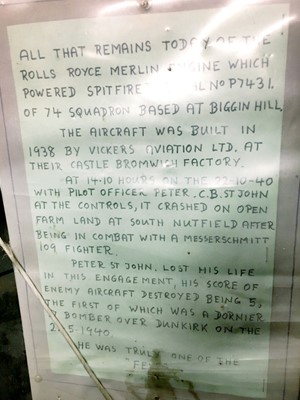 ALL THAT REMAINS TODAY OF THE
ROLLS ROYCE MERLIN ENGINE WHICH
POWERED SPITFIRE No P7431.
OF 74 SQUADRON BASED AT BIGGIN HILL
THE AIRCRAFT WAS BUILT IN
1938 BY VICKERS AVIATION LTD. AT
THEIR CASTLE BROMWICH FACTORY.
AT 14-10 HOURS ON THE 22-10-40
WITH PILOT OFFICER PETER.C.B.ST JOHN
AT THE CONTROLS, IT CRASHED ON OPEN
FARM LAND AT SOUTH NUTFIELD AFTER
BEING IN COMBAT WITH A MESSERSCHMITT
109 FIGHTER.
PETER ST JOHN. LOST HIS LIFE
IN THIS ENGAGEMENT, HIS SCORE OF
ENEMY AIRCRAFT DESTROYED BEING 5,
THE FIRST OF WHICH WAS A DORNIER
BOMBER OVER DUNKIRK ON THE
5.1940
HE WAS TRULY ONE OF THE
"FEW"